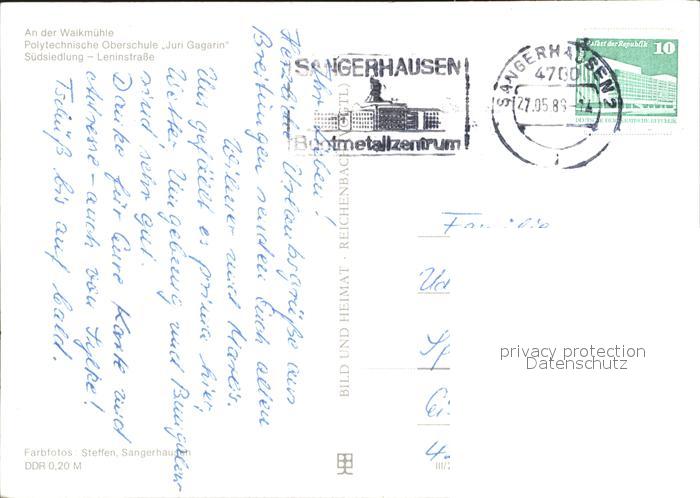 An der Walkmühle
Polytechnische Oberschule „Juri Gagarin"
Südsiedlung – Leninstraße
SANGERHAUSEN
Buntmetallzentrum
SANGERHAUSEN 2
4700
27.05.86
Palast der Republik 10
DEUTSCHE DEMOKRATISCHE REPUBLIK
Ihr Lieben!
Herzliche Urlaubsgrüße aus
Breitungen senden Euch allen
und
Uns gefällt es prima hier,
Wetter Umgebung und Bungalow
sind sehr gut.
Danke für Eure Karte und
Adresse – auch von Sylke!
Tschüß bis auf bald.
BILD UND HEIMAT · REICHENBACH (VOGTL)
Familie
privacy protection
Datenschutz
Farbfotos: Steffen, Sangerhausen
DDR 0,20 M